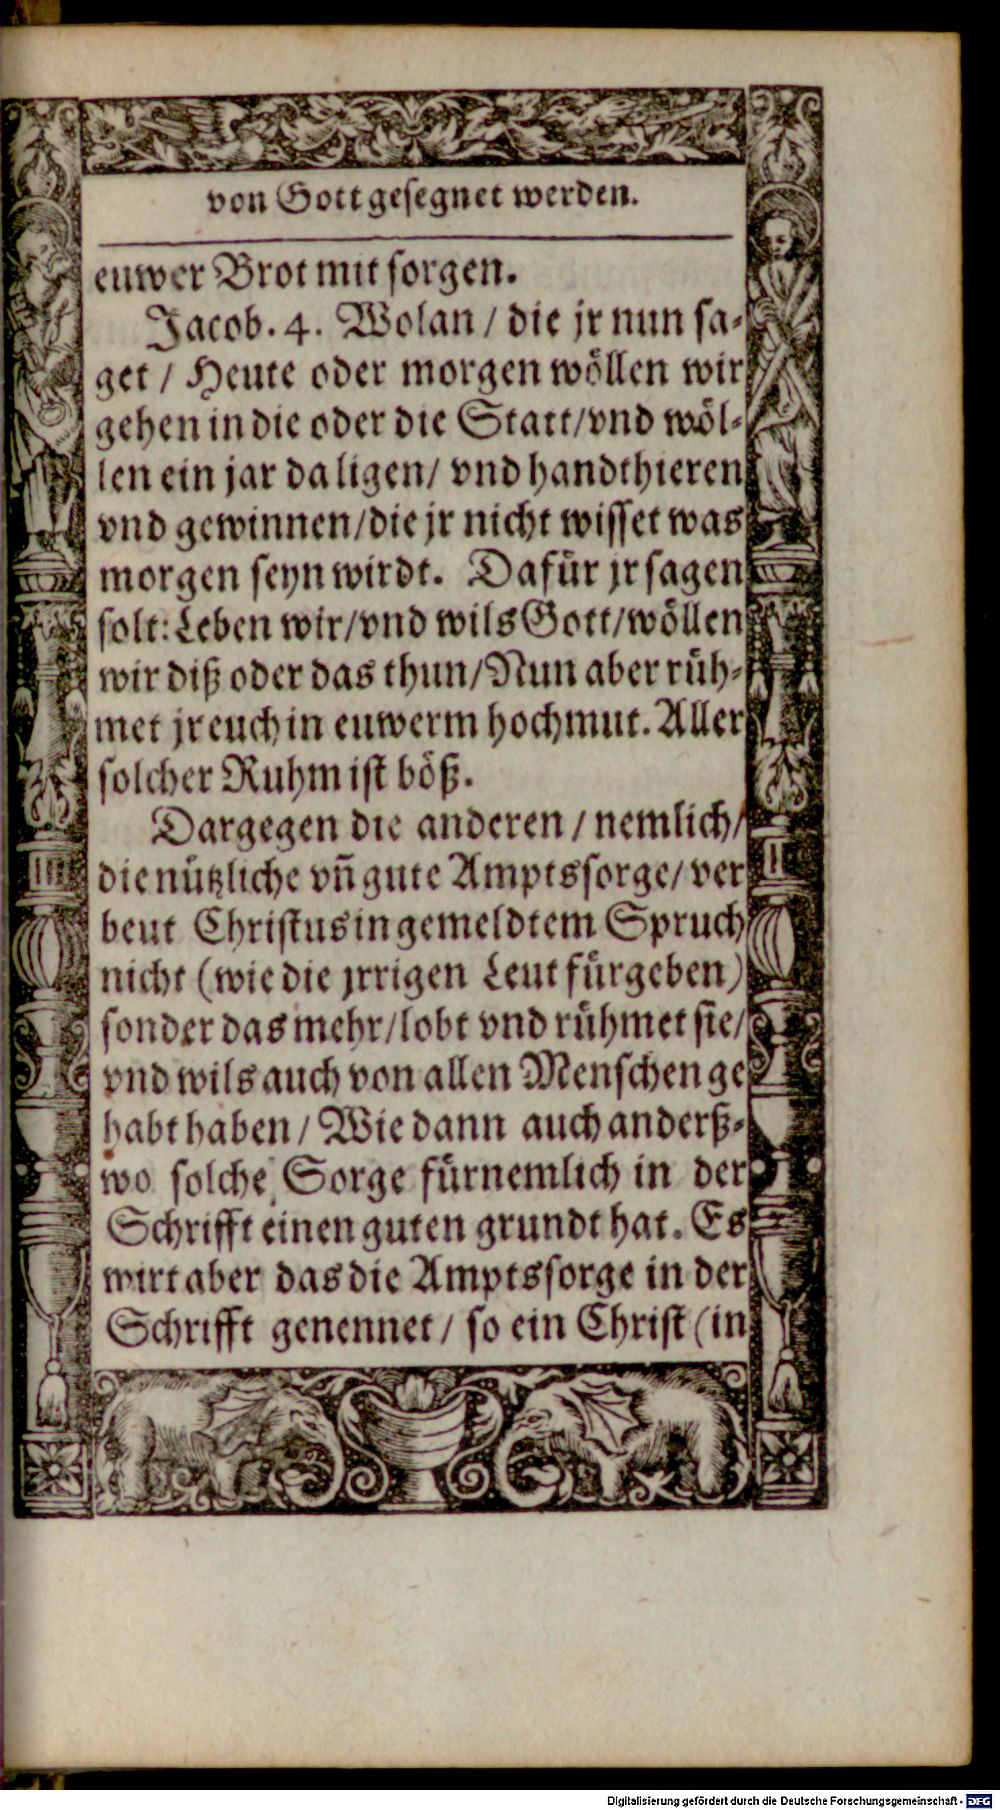 von Gott gesegnet werden.
euwer Brot mit sorgen.
Jacob. 4. Wolan / die jr nun sa-
get / Heute oder morgen wöllen wir
gehen in die oder die Statt/vnd wöl-
len ein jar da ligen/ vnd handthieren
vnd gewinnen/die jr nicht wisset was
morgen seyn wirdt. Dafür jr sagen
solt: Leben wir/vnd wils Gott/wöllen
wir diß oder das thun/Nun aber rüh-
met jr euch in euwerm hochmut. Aller
solcher Ruhm ist böß.
Dargegen die anderen / nemlich/
die nützliche vñ gute Amptssorge/ ver
beut Christus in gemeldtem Spruch
nicht (wie die jrrigen Leut fürgeben)
sonder das mehr/lobt vnd rühmet sie/
vnd wils auch von allen Menschen ge
habt haben / Wie dann auch anderß-
wo solche Sorge fürnemlich in der
Schrifft einen guten grundt hat. Es
wirt aber das die Amptssorge in der
Schrifft genennet / so ein Christ (in
Digitalisierung gefördert durch die Deutsche Forschungsgemeinschaft - DFG